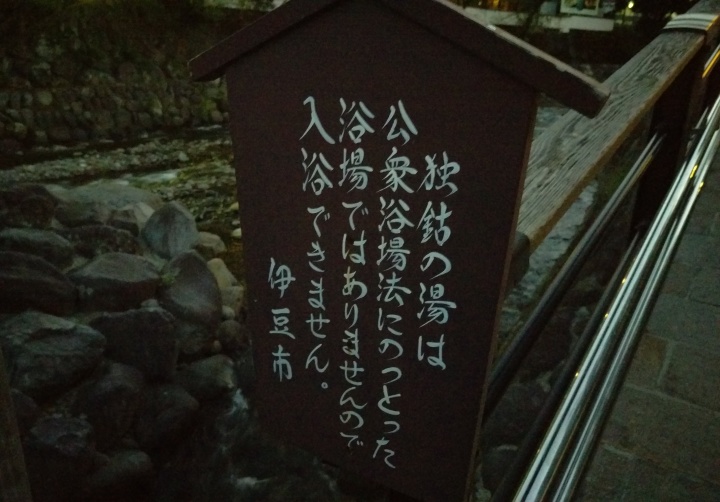 独鈷の湯は
公衆浴場法にのっとった
浴場ではありませんので
入浴できません。
伊豆市